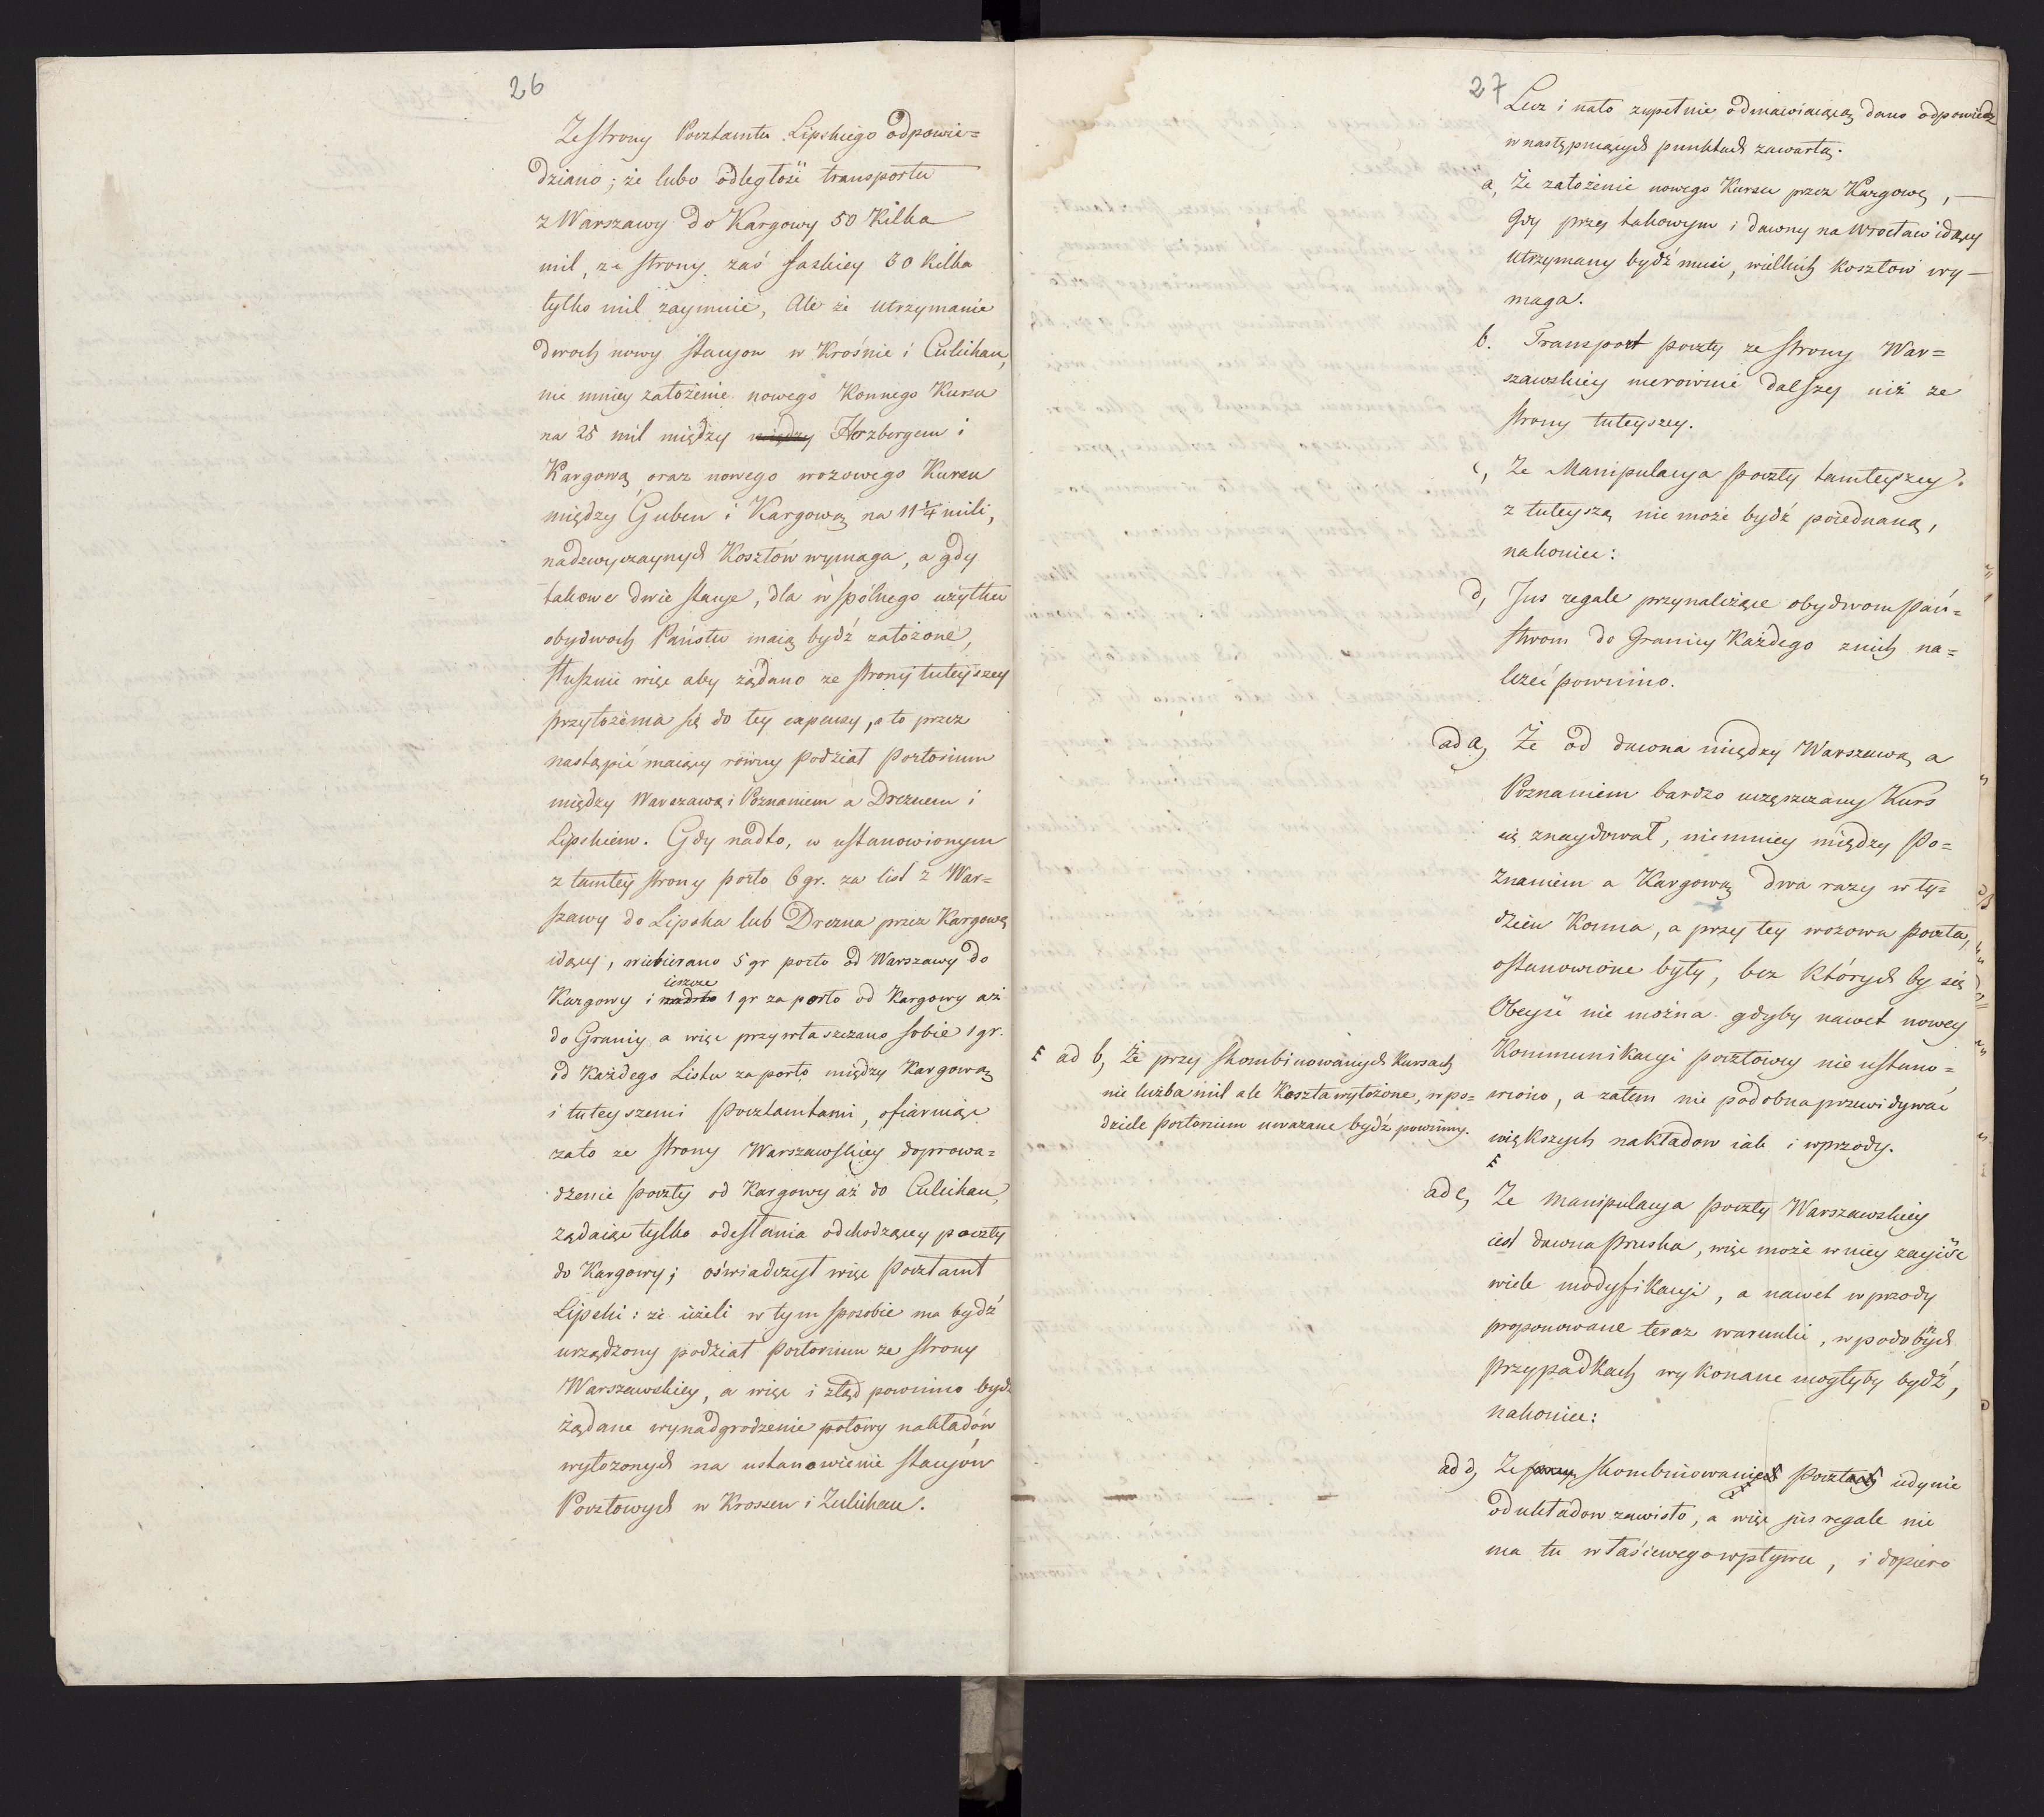 26
Ze strony Pocztamtu Lipskiego odpowie=
dziano; że lubo odległość transportu
z Warszawy do Kargowy 50 Kilka
mil, ze strony zaś saskiey 30 Kilka
tylko mil zaymuie, Ale że utrzymanie
dwoch nowy stacyow w Krośnie i Culichau,
nie mniey założenie nowego Konnego Kursu
na 25 mil między między Herzbergem i
Kargową, oraz nowego wozowego Kursu
między Guben i Kargową na 11 1/4 mili,
nadzwyczaynych Kosztów wymaga, a gdy
takowe dwie stacye, dla wspólnego użytku
obydwoch Państw maią bydź założone,
słusznie więc aby żądano ze strony tuteyszey
przyłożenia się do tey expensy, a to przez
nastąpić maiący równy podział portorium
między Warszawą i Poznaniem a Dreznem i
Lipskiem. Gdy nadto, w ustanowionym
z tamtey strony porto 6 gr. za list z War=
szawy do Lipska lub Drezna przez Kargowę
idący, wiebierano 5 gr porto od Warszawy do
ieszcze
Kargowy i nadto 1 gr za porto od Kargowy aż
do Granicy a więc przywłaszczano sobie 1 gr.
od Każdego Listu za porto między Kargową
i tuteyszemi Pocztamtami, ofiaruiąc
zato ze strony Warszawskiey doprowa=
dzenie poczty od Kargowy aż do Culichau,
żądaiąc tylko odesłania odchodzącey poczty
do Kargowy; oświadczył więc Pocztamt
Lipski: że ieżeli w tym sposobie ma bydź
urządzony podział portorium ze strony
Warszawskiey, a więc i ztąd powinno bydź
żądane wynadgrodzenie połowy nakładów
wyłożonych na ustanowienie stacyów
Pocztowych w Krossen i Zulichau.
27
Lecz i nato zupełnie odmawiaiącą dano odpowiedz
w następuiących punktach zawartą.
a, Że założenie nowego Kursu przez Kargowę,
gdy przy takowym i dawny na Wrocław idący
utrzymany bydź musi, wielkich kosztow wy-
maga.
b. Transport poczty ze strony War=
szawskiey nierównie dalszy niż ze
strony tuteyszey.
c, Że Manipulacya poczty tamteyszey
z tuteyszą nie może bydź poiednaną,
nakoniec:
d, Jus regale przynależące obydwom Pań=
stwom do Granicy Każdego z nich na=
leżeć powinno.
ad a, Że od dawna między Warszawą a
Poznaniem bardzo uczęszczany Kurs
się znaydował, niemniey między Po=
znaniem a Kargową dwa razy w ty=
dzień Konna, a przy tey wozowa poczta,
ostanowione były, bez Których by się
Obeyść nie można gdyby nawet nowey
Kommunikacyi pocztowey nie ustano=
wiono, a zatem nie podobna przewidywać
większych nakładow iak i wprzody.
ad b, Że przy skombinowanych Kursach
nie liczba mil ale Koszta wyłożone, w po=
dziele portorium uwazane bydź powinny.
ad c, Że manipulacya poczty Warszawskiey
iest dawna Pruska, więc może w niey zayiść
wiele modyfikacyi, a nawet w przody
proponowane teraz warunki, w podobnych
przypadkach wykonane mogłyby bydź,
nakoniec:
ad d, Że przy skombinowanych Pocztach iedynie
od układow zawisło, a więc jus regale nie
ma tu właściewego wpływu, i dopiero